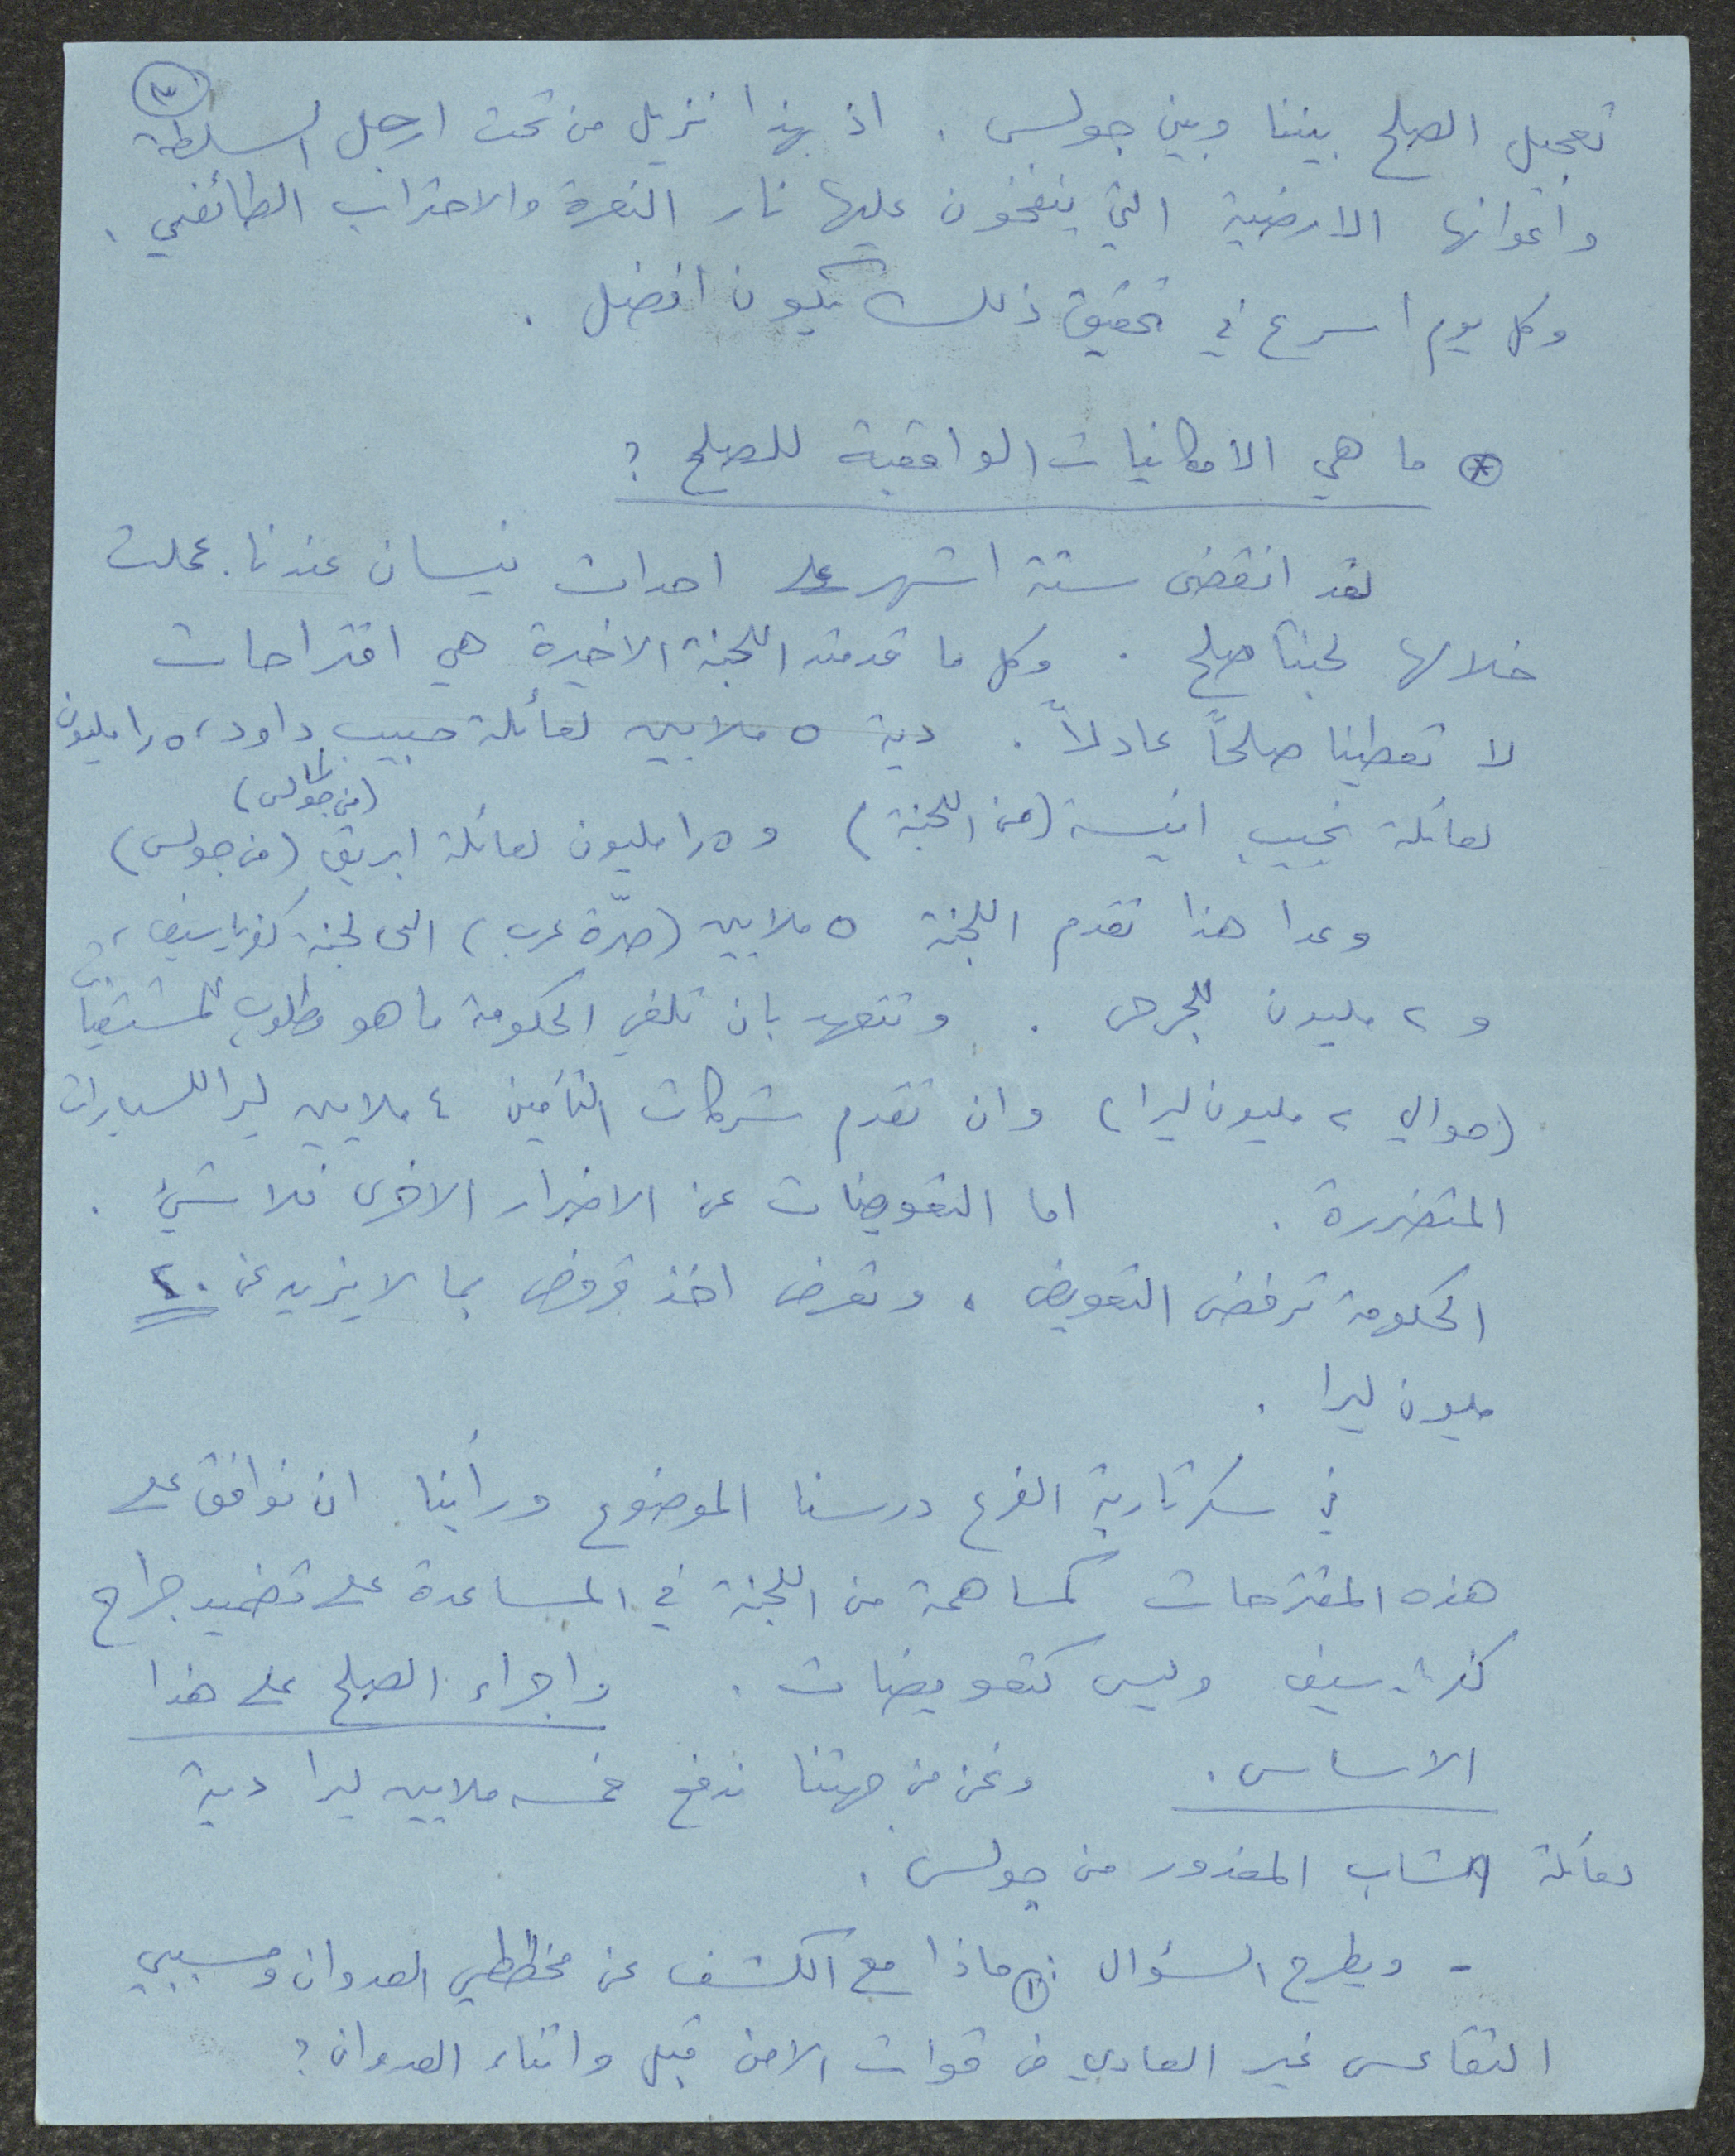 ٣
تعجيل الصلح بيننا وبين جولس . اذ بهذا نزيل من تحت ارجل السلطة
واعوانها الارضية التي ينفخون عليها نار النعرة والاحتراب الطائفي .
وكل يوم اسرع في تحقيق ذلك يكون افضل .
* ما هي الامكانيات الواقعية للصلح ?
لقد انقضى ستة اشهر على احداث نيسان عندنا. عملت
خلالها لجنتا صلح . وكل ما قدمته اللجنة الاخيرة هي اقتراحات
لا تعطينا صلحاً عادلاً . دية ٥ ملايين لعائلة حبيب داود، ١٫٥ مليون
(من جولس)
لعائلة نجيب انيسة (من اللجنة) و ١٫٥ مليون لعائلة ابريق (من جولس)
وعدا هذا تقدم اللجنة ٥ ملايين (صرّة عرب) الى لجنة كفرياسيف،
و ٢ مليون للجرحى . وتتعهد بان تلغي الحكومة ما هو مطلوب للمستشفيات
(حوالي ٢ مليون ليرا) وان تقدم شركات التأمين ٤ ملايين ليرا للسيارات
المتضررة . اما التعويضات عن الاضرار الاخرى فلا شيء .
الحكومة ترفض التعويض ، وتعرض اخذ قروض بما لا يزيد عن ٢٠
مليون ليرا .
في سكرتارية الفرع درسنا الموضوع ورأينا ان نوافق على
هذه المقترحات كمساهمة من اللجنة في المساعدة على تضميد جراح
كفرياسيف وليس كتعويضات . واجراء الصلح على هذا
الاساس . ونحن من جهتنا ندفع خمسه ملايين ليرا دية
لعائلة الشاب المغدور من جولس .
- ويطرح السؤال : ① ماذا مع الكشف عن مخططي العدوان ومسببي
التقاعس غير العادي من قوات الامن قبل واثناء العدوان ?